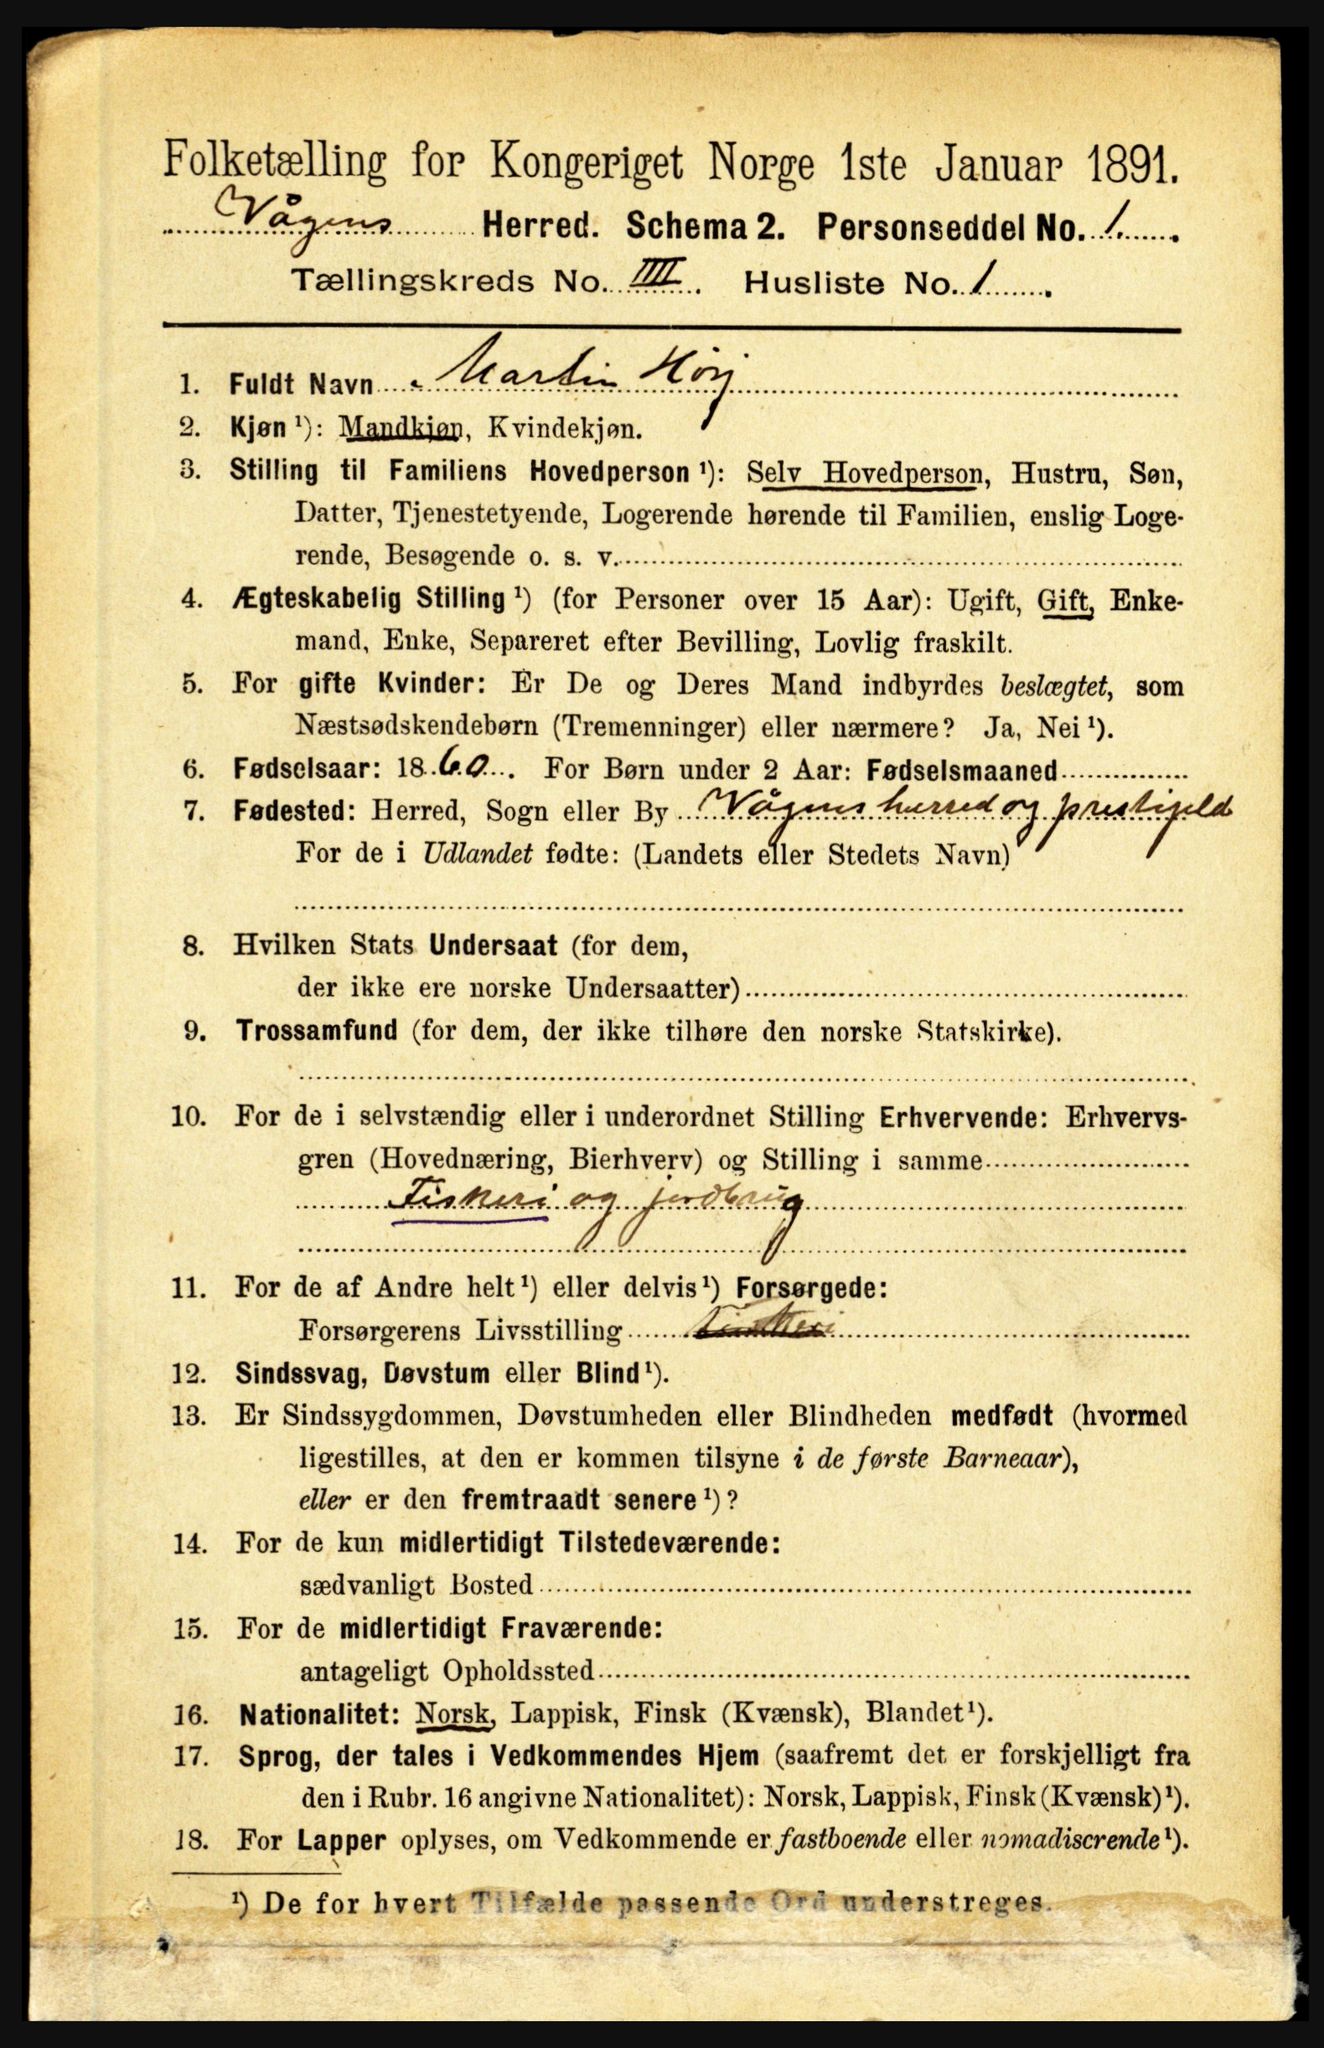 Folketælling for Kongeriget Norge 1ste Januar 1891.
Vågens Herred. Schema 2. Personseddel No. 1.
Tællingskreds No. IIII. Husliste No. 1.
1. Fuldt Navn Martin
2. Kjøn ¹): Mandkjøn, Kvindekjøn.
3. Stilling til Familiens Hovedperson ¹): Selv Hovedperson, Hustru, Søn,
Datter, Tjenestetyende, Logerende hørende til Familien, enslig Loge-
rende, Besøgende o. s. v.
4. Ægteskabelig Stilling ¹) (for Personer over 15 Aar): Ugift, Gift, Enke-
mand, Enke, Separeret efter Bevilling, Lovlig fraskilt.
5. For gifte Kvinder: Er De og Deres Mand indbyrdes beslægtet, som
Næstsødskendebørn (Tremenninger) eller nærmere? Ja, Nei ¹).
6. Fødselsaar: 1860. For Børn under 2 Aar: Fødselsmaaned
7. Fødested: Herred, Sogn eller By Vågens herred og prestigeld
For de i Udlandet fødte: (Landets eller Stedets Navn)
8. Hvilken Stats Undersaat (for dem,
der ikke ere norske Undersaatter)
9. Trossamfund (for dem, der ikke tilhøre den norske Statskirke).
10. For de i selvstændig eller i underordnet Stilling Erhvervende: Erhvervs-
gren (Hovednæring, Bierhverv) og Stilling i samme
Fiskeri og jordbrug
11. For de af Andre helt ¹) eller delvis ¹) Forsørgede:
Forsørgerens Livsstilling Fiskeri
12. Sindssvag, Døvstum eller Blind ¹).
13. Er Sindssygdommen, Døvstumheden eller Blindheden medfødt (hvormed
ligestilles, at den er kommen tilsyne i de første Barneaar),
eller er den fremtraadt senere ¹)?
14. For de kun midlertidigt Tilstedeværende:
sædvanligt Bosted
15. For de midlertidigt Fraværende:
antageligt Opholdssted
16. Nationalitet: Norsk, Lappisk, Finsk (Kvænsk), Blandet ¹).
17. Sprog, der tales i Vedkommendes Hjem (saafremt det er forskjelligt fra
den i Rubr. 16 angivne Nationalitet): Norsk, Lappisk, Finsk (Kvænsk) ¹).
18. For Lapper oplyses, om Vedkommende er fastboende eller nomadiserende ¹).
¹) De for hvert Tilfælde passende Ord understreges.